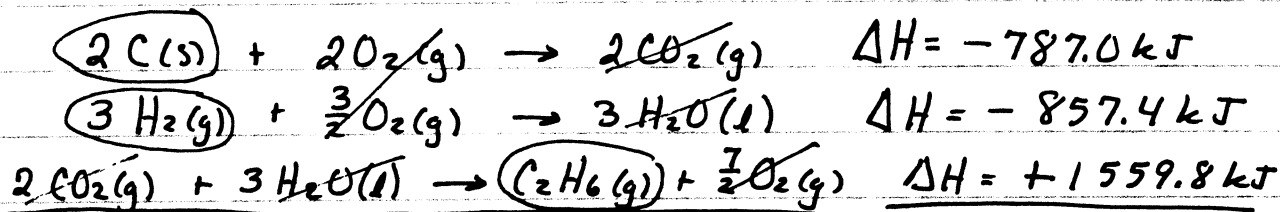 2 C(s) + 2O₂(g) → 2CO₂(g) ΔH = -787.0 kJ
3 H₂(g) + 3/2 O₂(g) → 3 H₂O(l) ΔH = - 857.4 kJ
2 CO₂(g) + 3 H₂O(l) → C₂H₆(g) + 7/2 O₂(g) ΔH = +1559.8 kJ